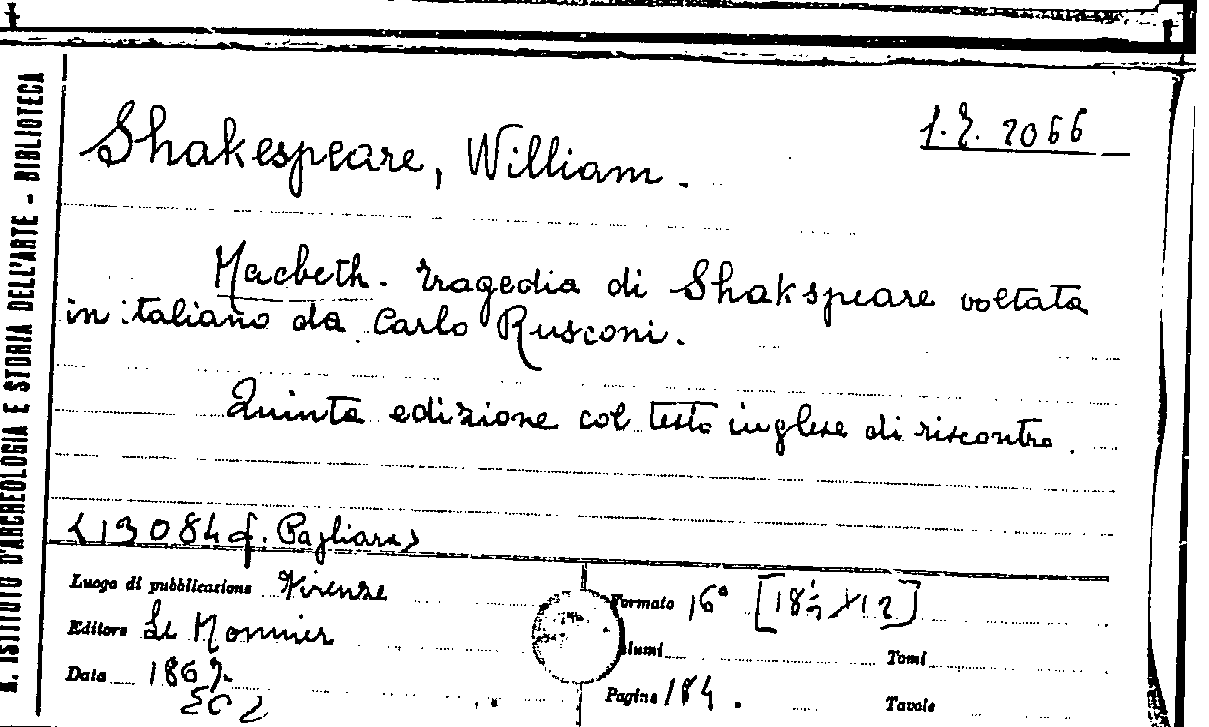 R. ISTITUTO D'ARCHEOLOGIA E STORIA DELL'ARTE - BIBLIOTECA
2066
Shakespeare, William.
Macbeth. Tragedia di Shakspeare voltata
in italiano da Carlo Rusconi.
Quinta edizione col testo inglese di riscontro.
<13084 f. Pagliara>
Luogo di pubblicazione Firenze
Formato 16°
Editore Le Monnier
Volumi Tomi
Data 1867.
Pagine 184. Tavole